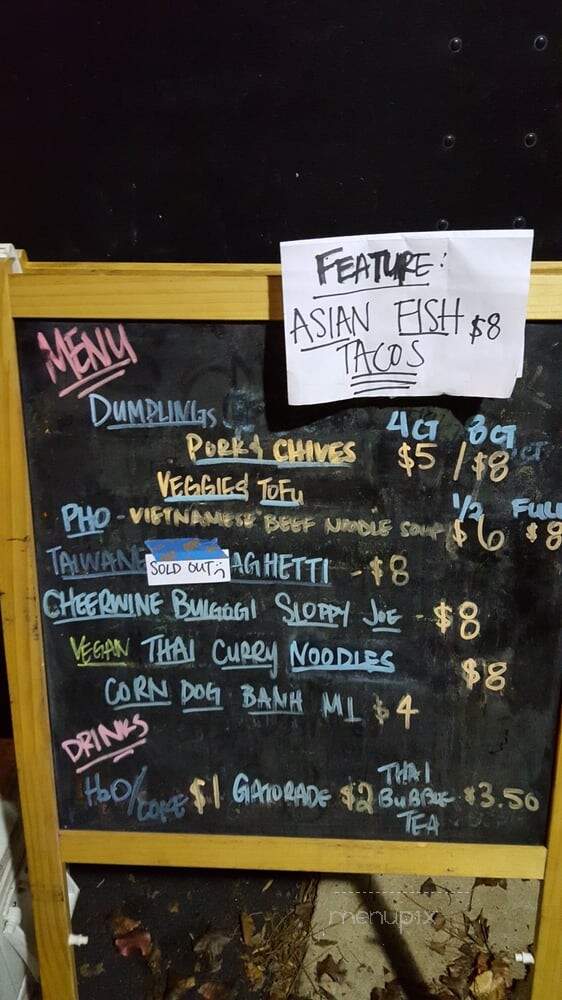 FEATURE:
ASIAN FISH $8
TACOS
MENU
DUMPLINGS
4 CT 8 CT
PORK & CHIVES $5 / $8
VEGGIES & TOFU
1/2 FULL
PHO - VIETNAMESE BEEF NOODLE SOUP $6 $8
TAIWANE SOLD OUT :( AGHETTI - $8
CHEERWINE BULGOGI SLOPPY JOE - $8
VEGAN THAI CURRY NOODLES $8
CORN DOG BANH MI $4
DRINKS
H2O/COKE $1 GATORADE $2 THAI BUBBLE TEA $3.50
menupix